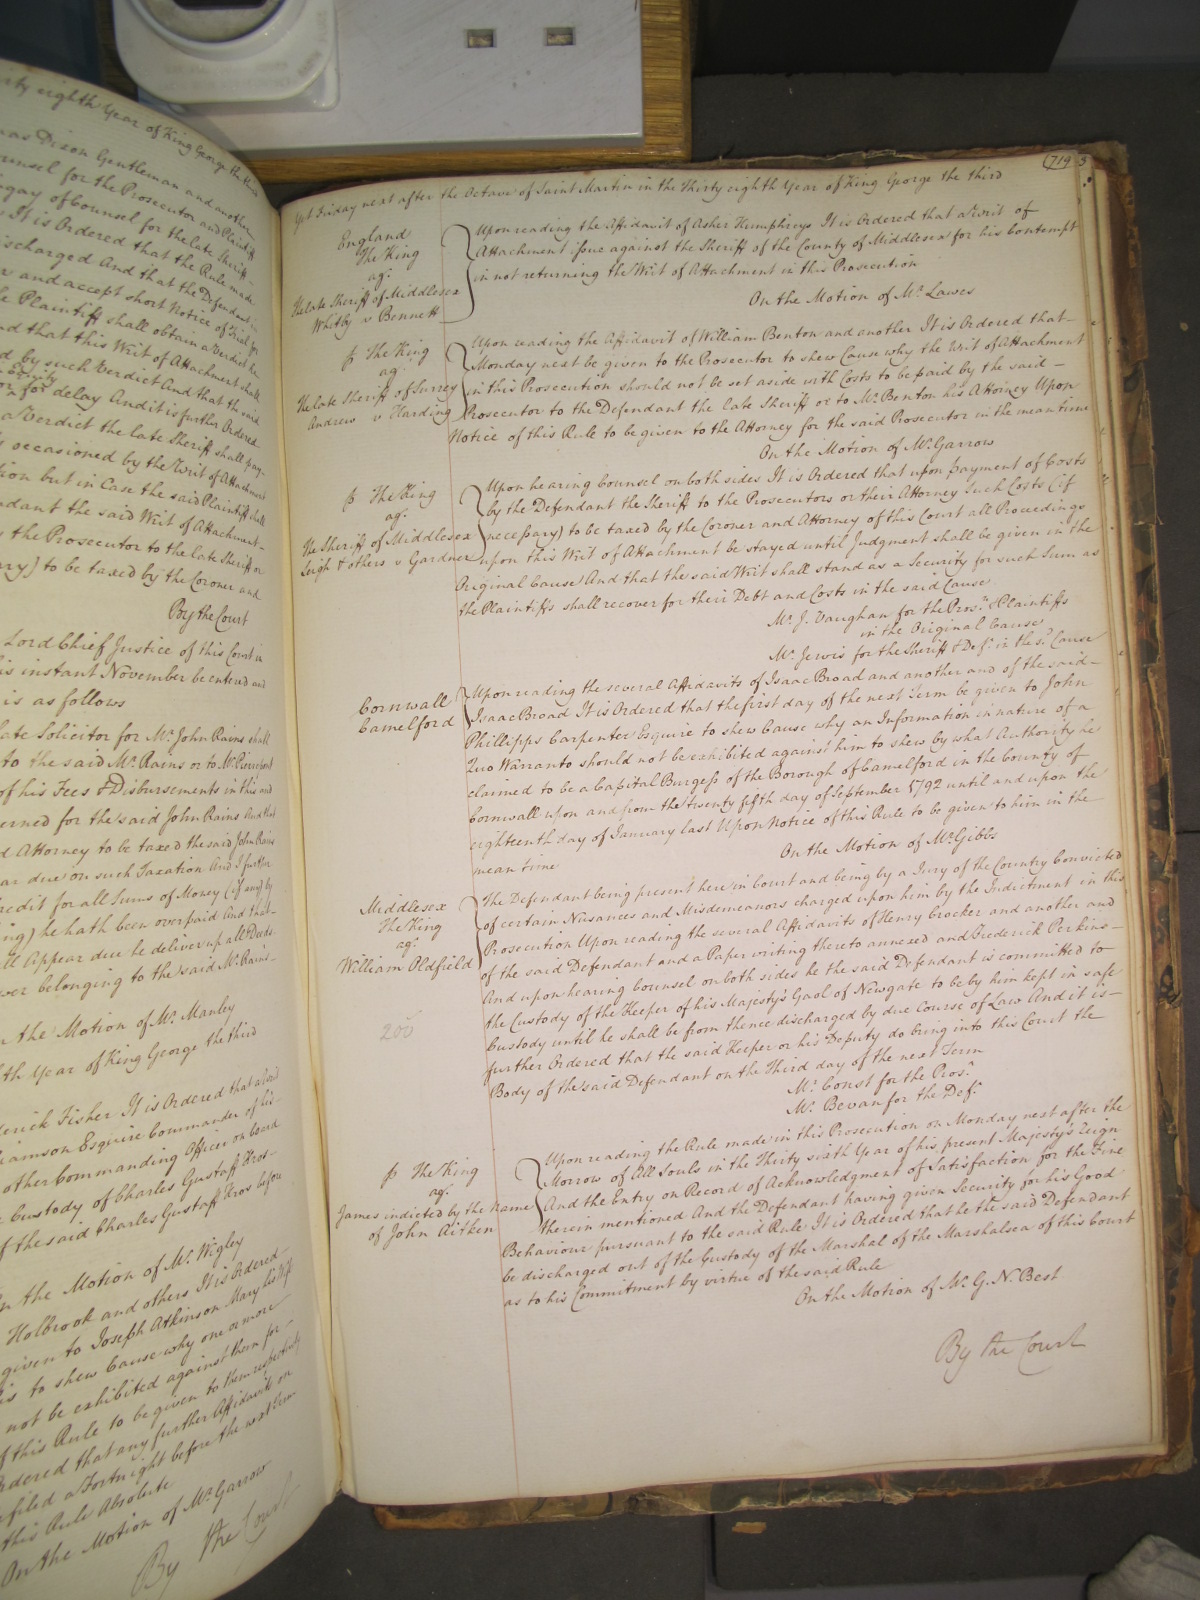 irty eighth Year of King George the third
mas Dixon Gentleman and another
ounsel for the Prosecutor and Plaintiff
igay of Counsel for the late Sheriff
It is Ordered that the Rule made
ischarged And that the Defendant in
r and accept short Notice of Trial for
le Plaintiff shall obtain a Verdict he
nd that this Writ of Attachment shall
d by such Verdict And that the said
or for delay And it is further Ordered
a Verdict the late Sheriff shall pay
occasioned by the Writ of Attachment
tion but in Case the said Plaintiff shall
ndant the said Writ of Attachment
the Prosecutor to the late Sheriff or
ary) to be taxed by the Coroner and
By the Court
Lord Chief Justice of this Court in
is instant November be entered and
is as follows
late Solicitor for Mr. John Rains shall
to the said Mr. Rains or to Mr.
of his Fees & Disbursements in this and
erned for the said John Rains And that
d Attorney to be taxed the said John Rains
ar due on such Taxation And I further
redit for all Sums of Money (if any) by
ing) he hath been overpaid And that
ll appear due he deliver up all Deeds
ver belonging to the said Mr. Rains
n the Motion of Mr. Manley
th Year of King George the third
derick Fisher It is Ordered that a Writ
liamson Esquire Commander of his
other Commanding Officer on board
Custody of Charles Gustaff Kros
f the said Charles Gustaff Kros before
On the Motion of Mr. Wigley
Holbrook and others It is Ordered
given to Joseph Atkinson Mary his Wife
is to shew Cause why one or more
not be exhibited against them for
f this Rule to be given to them respectively
rdered that any further Affidavits on
filed a Fortnight before the next Term
this Rule Absolute
On the Motion of Mr. Garrow
By the Court
719 3
Yet Friday next after the Octave of Saint Martin in the Thirty eighth Year of King George the third
England
The King
ag:
The late Sheriff of Middlesex
Whitby v Bennett
Upon reading the Affidavit of Asher Humphreys It is Ordered that a Writ of
Attachment issue against the Sheriff of the County of Middlesex for his Contempt
in not returning the Writ of Attachment in this Prosecution
On the Motion of Mr. Lawes
The King
ag:
The late Sheriff of Surrey
Andrew v Harding
Upon reading the Affidavit of William Benton and another It is Ordered that
Monday next be given to the Prosecutor to shew Cause why the Writ of Attachment
in this Prosecution should not be set aside with Costs to be paid by the said
Prosecutor to the Defendant the late Sheriff or to Mr. Benton his Attorney Upon
Notice of this Rule to be given to the Attorney for the said Prosecutor in the mean time
On the Motion of Mr. Garrow
The King
ag:
The Sheriff of Middlesex
Leigh & others v Gardner
Upon hearing Counsel on both sides It is Ordered that upon payment of Costs
by the Defendant the Sheriff to the Prosecutors or their Attorney Such Costs (if
necessary) to be taxed by the Coroner and Attorney of this Court all Proceedings
upon this Writ of Attachment be stayed until Judgment shall be given in the
Original Cause And that the said Writ shall stand as a Security for such Sum as
the Plaintiffs shall recover for their Debt and Costs in the said Cause
Mr. J. Vaughan for the Pros.rs & Plaintiffs
in the Original Cause
Mr. Jervis for the Sheriff & Def.t in the s.d Cause
Cornwall
Camelford
Upon reading the several Affidavits of Isaac Broad and another and of the said
Isaac Broad It is Ordered that the first day of the next Term be given to John
Phillipps Carpenter Esquire to shew Cause why an Information in nature of a
Quo Warranto should not be exhibited against him to shew by what Authority he
claimed to be a Capital Burgess of the Borough of Camelford in the County of
Cornwall upon and from the twenty fifth day of September 1792 until and upon the
eighteenth day of January last Upon Notice of this Rule to be given to him in the
mean time
On the Motion of Mr. Gibbs
Middlesex
The King
ag:
William Oldfield
The Defendant being present here in Court and being by a Jury of the Country Convicted
of certain Nusances and Misdemeanors charged upon him by the Indictment in this
Prosecution Upon reading the several Affidavits of Henry Crocker and another and
of the said Defendant and a Paper writing thereto annexed and Frederick Perkins
And upon hearing Counsel on both sides he the said Defendant is committed to
the Custody of the Keeper of his Majesty's Gaol of Newgate to be by him kept in safe
Custody until he shall be from thence discharged by due Course of Law And it is
further Ordered that the said Keeper or his Deputy do bring into this Court the
Body of the said Defendant on the Third day of the next Term
Mr. Const for the Pros.r
Mr. Bevan for the Def.t
The King
ag:
James indicted by the Name
of John Aitken
Upon reading the Rule made in this Prosecution on Monday next after the
Morrow of All Souls in the Thirty sixth Year of his present Majesty's Reign
And the Entry on Record of Acknowledgment of Satisfaction for the Fine
therein mentioned And the Defendant having given Security for his Good
Behaviour pursuant to the said Rule It is Ordered that he the said Defendant
be discharged out of the Custody of the Marshal of the Marshalsea of this Court
as to his Commitment by virtue of the said Rule
On the Motion of Mr. G. N. Best
By the Court